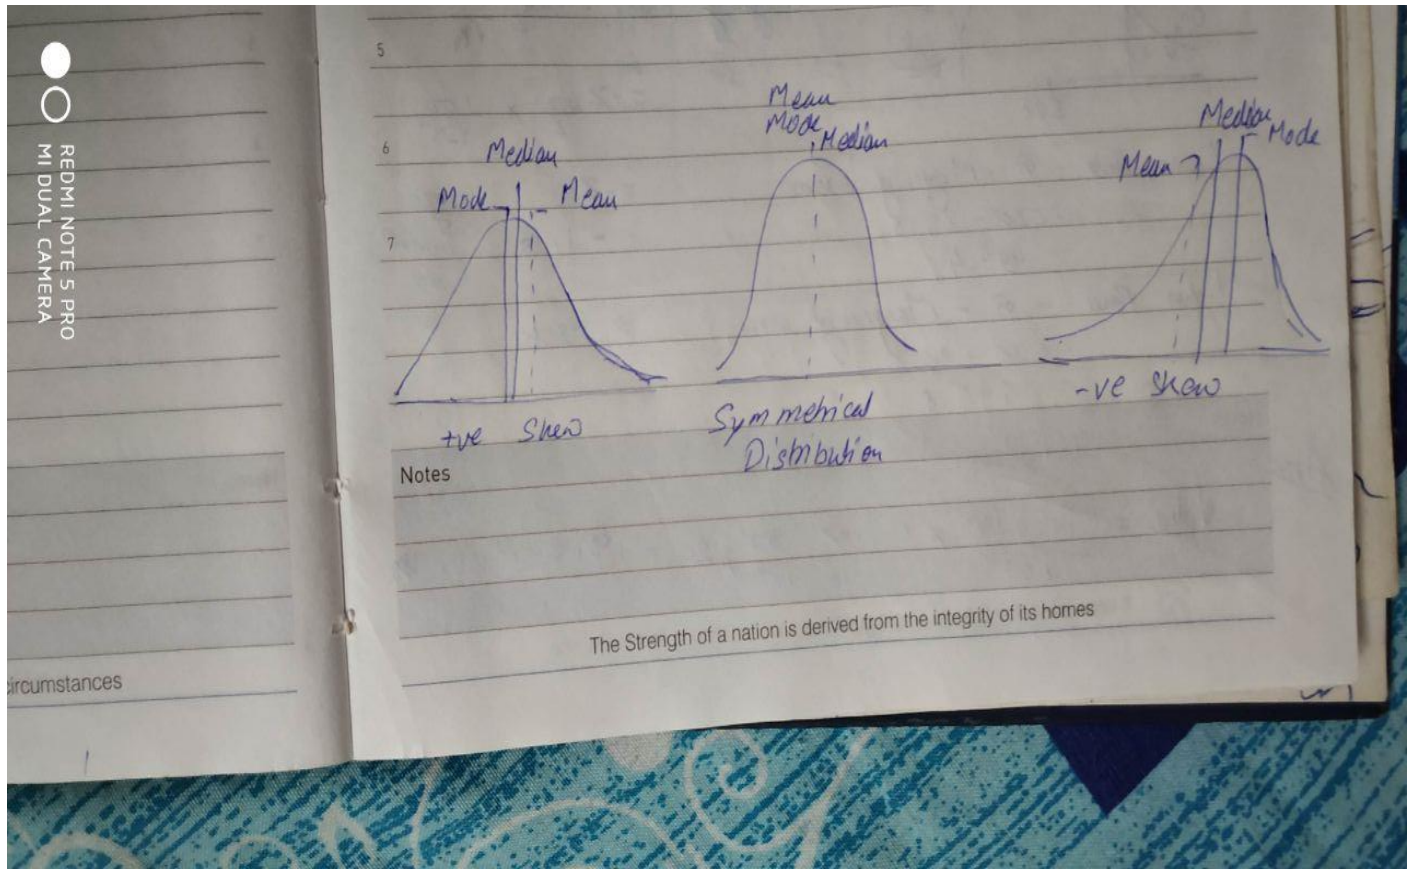 REDMI NOTE 5 PRO
MI DUAL CAMERA
circumstances
5
6
7
Median
Mode
Mean
+ve Skew
Mean
Mode
Median
Symmetrical
Distribution
Median
Mode
Mean
-ve Skew
Notes
The Strength of a nation is derived from the integrity of its homes